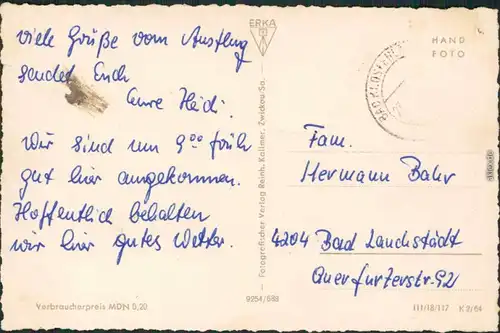 viele Grüße vom Ausflug
sendet Euch
Eure Heidi.
Wir sind um 9⁰⁰ früh
gut hier angekommen.
Hoffentlich behalten
wir hier gutes Wetter.
Verbraucherpreis MDN 0,20
ERKA
Fotografischer Verlag Reinh. Kallmer, Zwickau-Sa.
9254/688
HAND
FOTO
Fam.
Hermann Bahr
4204 Bad Lauchstädt
Querfurterstr. 92
III/18/117 K 9/64